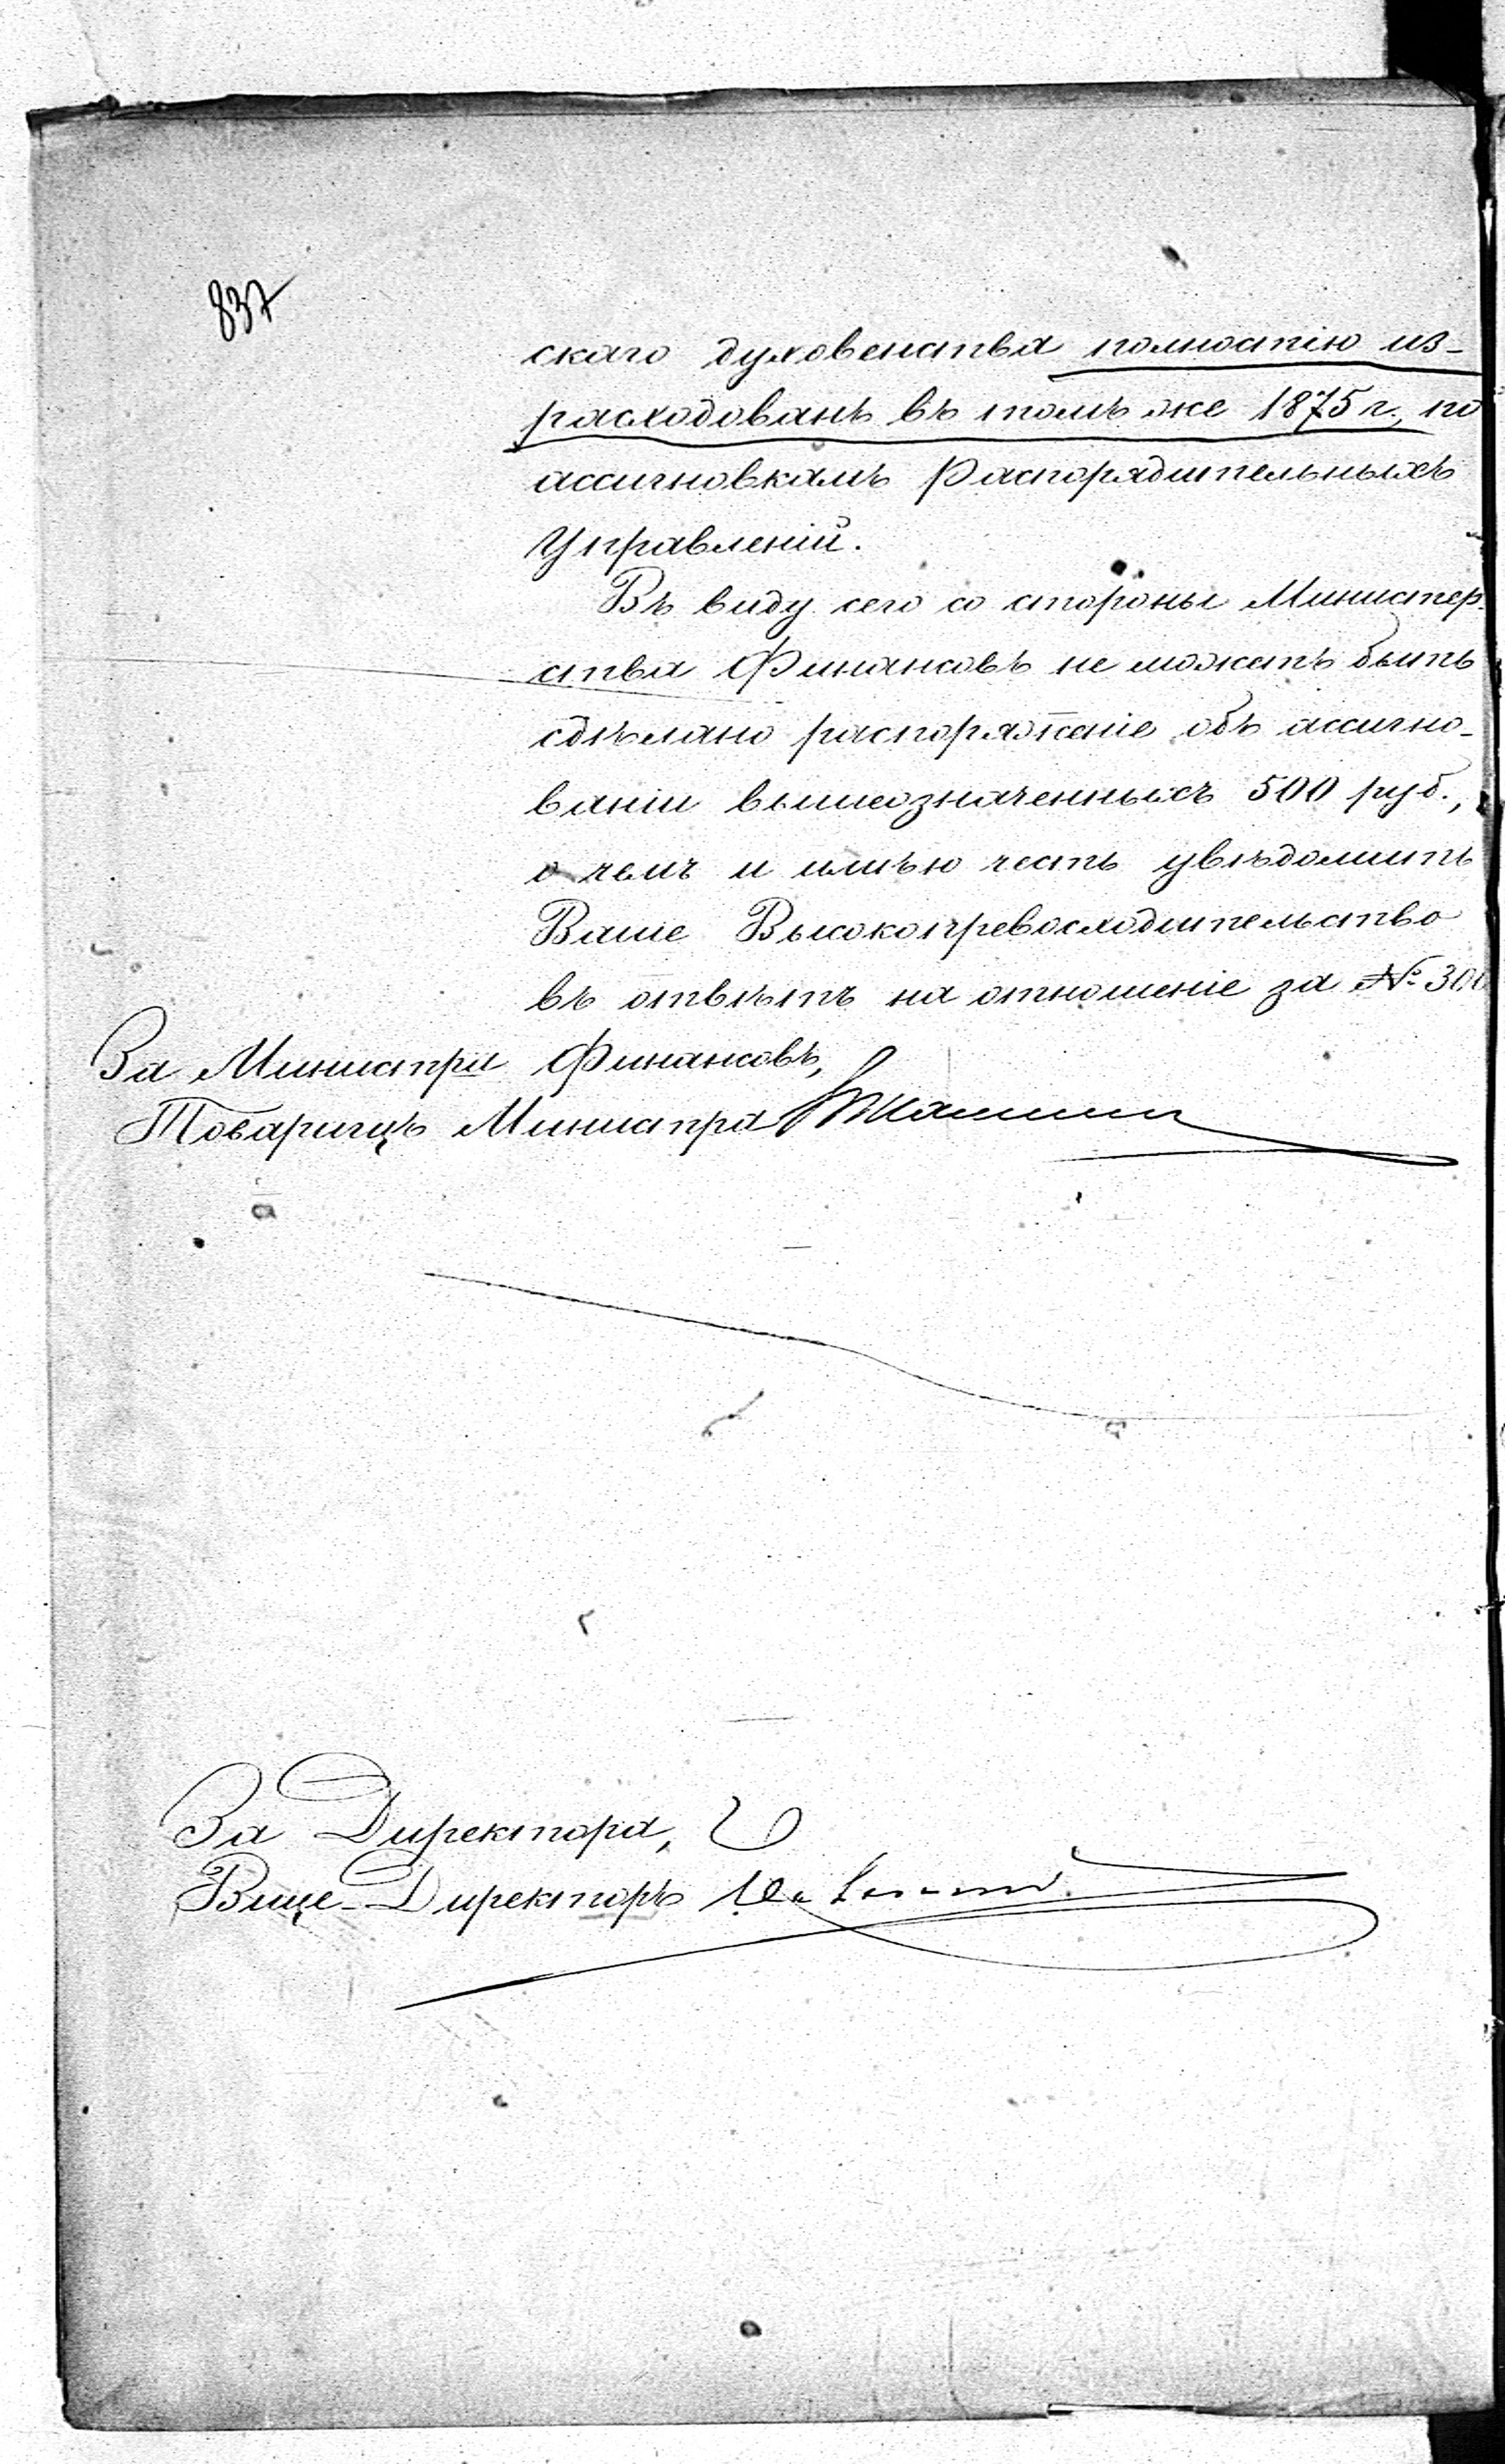 837
скаго духовенства полностію из-
расходованъ въ томъ же 1875 г., по
ассигновкамъ Распорядительныхъ
Управленій.
Въ виду сего со стороны Министер-
ства Финансовъ не можетъ быть
сдѣлано распоряженіе объ ассигно-
ваніи вышеозначенныхъ 500 руб.,
о чемъ и имѣю честь увѣдомить
Ваше Высокопревосходительство
въ отвѣтъ на отношеніе за №
За Министра Финансовъ,
Товарищъ Министра
За Директора,
Вице-Директоръ